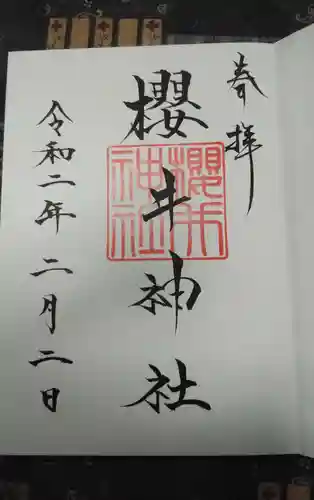 奉拝
櫻井神社
令和二年 二月二日
櫻井
神社